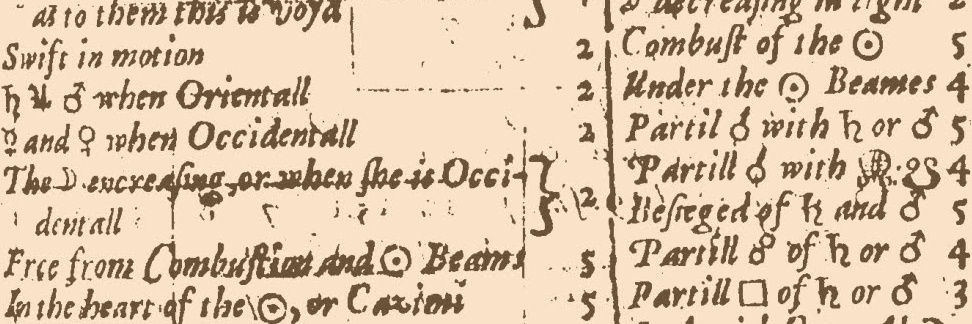 as to them this is voyd
Swift in motion 2
♄ ♃ ♂ when Orientall 2
☿ and ♀ when Occidentall 2
The ☽ encreaſing, or when ſhe is Occi- 2
dentall
Free from Combuſtion and ☉ Beams 5
In the heart of the ☉, or Cazimi 5
☽ decreaſing in light 2
Combuſt of the ☉ 5
Under the ☉ Beames 4
Partil ☌ with ♄ or ♂ 5
Partill ☌ with ☋ 4
Beſieged of ♄ and ♂ 5
Partill ☍ of ♄ or ♂ 4
Partill □ of ♄ or ♂ 3